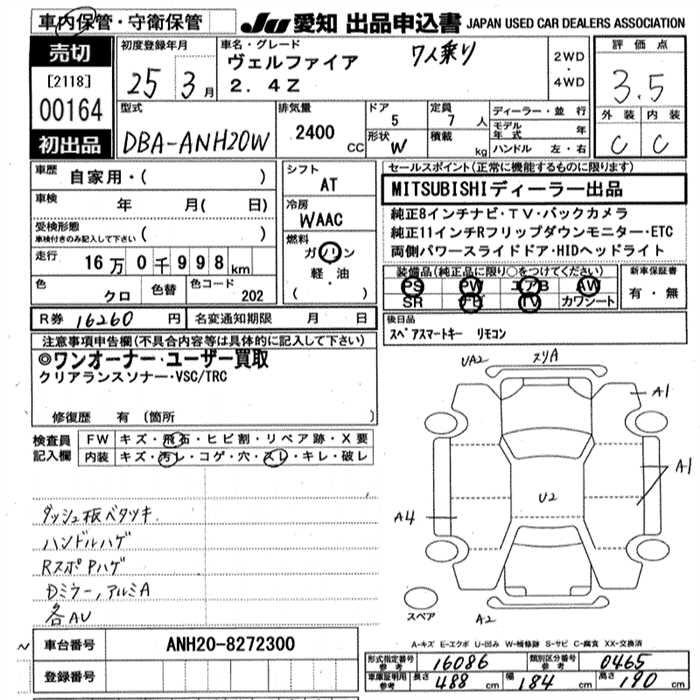 車内保管・守衛保管
JU 愛知 出品申込書 JAPAN USED CAR DEALERS ASSOCIATION
売切
[2118]
00164
初出品
初度登録年月
25年 3月
車名・グレード
ヴェルファイア 7人乗り
2.4Z
2WD
・
4WD
評価点
3.5
外装 内装
C C
型式
DBA-ANH20W
排気量
2400 CC
ドア
5
形状
W
定員
7人
積載
kg
ディーラー・並行
モデル年式 年
ハンドル 左・右
車歴
自家用・( )
車検
年 月( 日)
受検形態
車検付きのみ記入して下さい ( )
走行
16万0千998km
色
クロ
色替
色コード
202
シフト
AT
冷房
WAAC
燃料
ガソリン
軽・油
( )
セールスポイント(正常に機能するものに限ります)
MITSUBISHIディーラー出品
純正8インチナビ・TV・バックカメラ
純正11インチRフリップダウンモニター・ETC
両側パワースライドドア・HIDヘッドライト
装備品(純正品に限り○をつけてください)
PS PW エアB AW
SR TV カワシート
新車保証書
有・無
R券 16260円
名変通知期限 月 日
後日品
スペアスマートキー リモコン
注意事項申告欄(不具合内容等は具体的に記入して下さい)
◎ワンオーナー・ユーザー買取
クリアランスソナー・VSC/TRC
修復歴 有 (箇所
検査員記入欄
FW キズ・飛石・ヒビ割・リペア跡・X要
内装 キズ・汚レ・コゲ・穴・スレ・キレ・破レ
ダッシュ板ベタツキ
ハンドルハゲ
RスポPハゲ
Dミラー,アルミA
各AU
UA2 スリA
A1
A1
U2
A4
スペア
A2
A-キズ E-エクボ U-凹み W-補修跡 S-サビ C-腐食 XX-交換済
車台番号 ANH20-8272300
登録番号
形式指定番号 参考 16086
類別区分番号 参考 0465
車庫証明用 参考 長さ 488 幅 184 高さ 190 cm